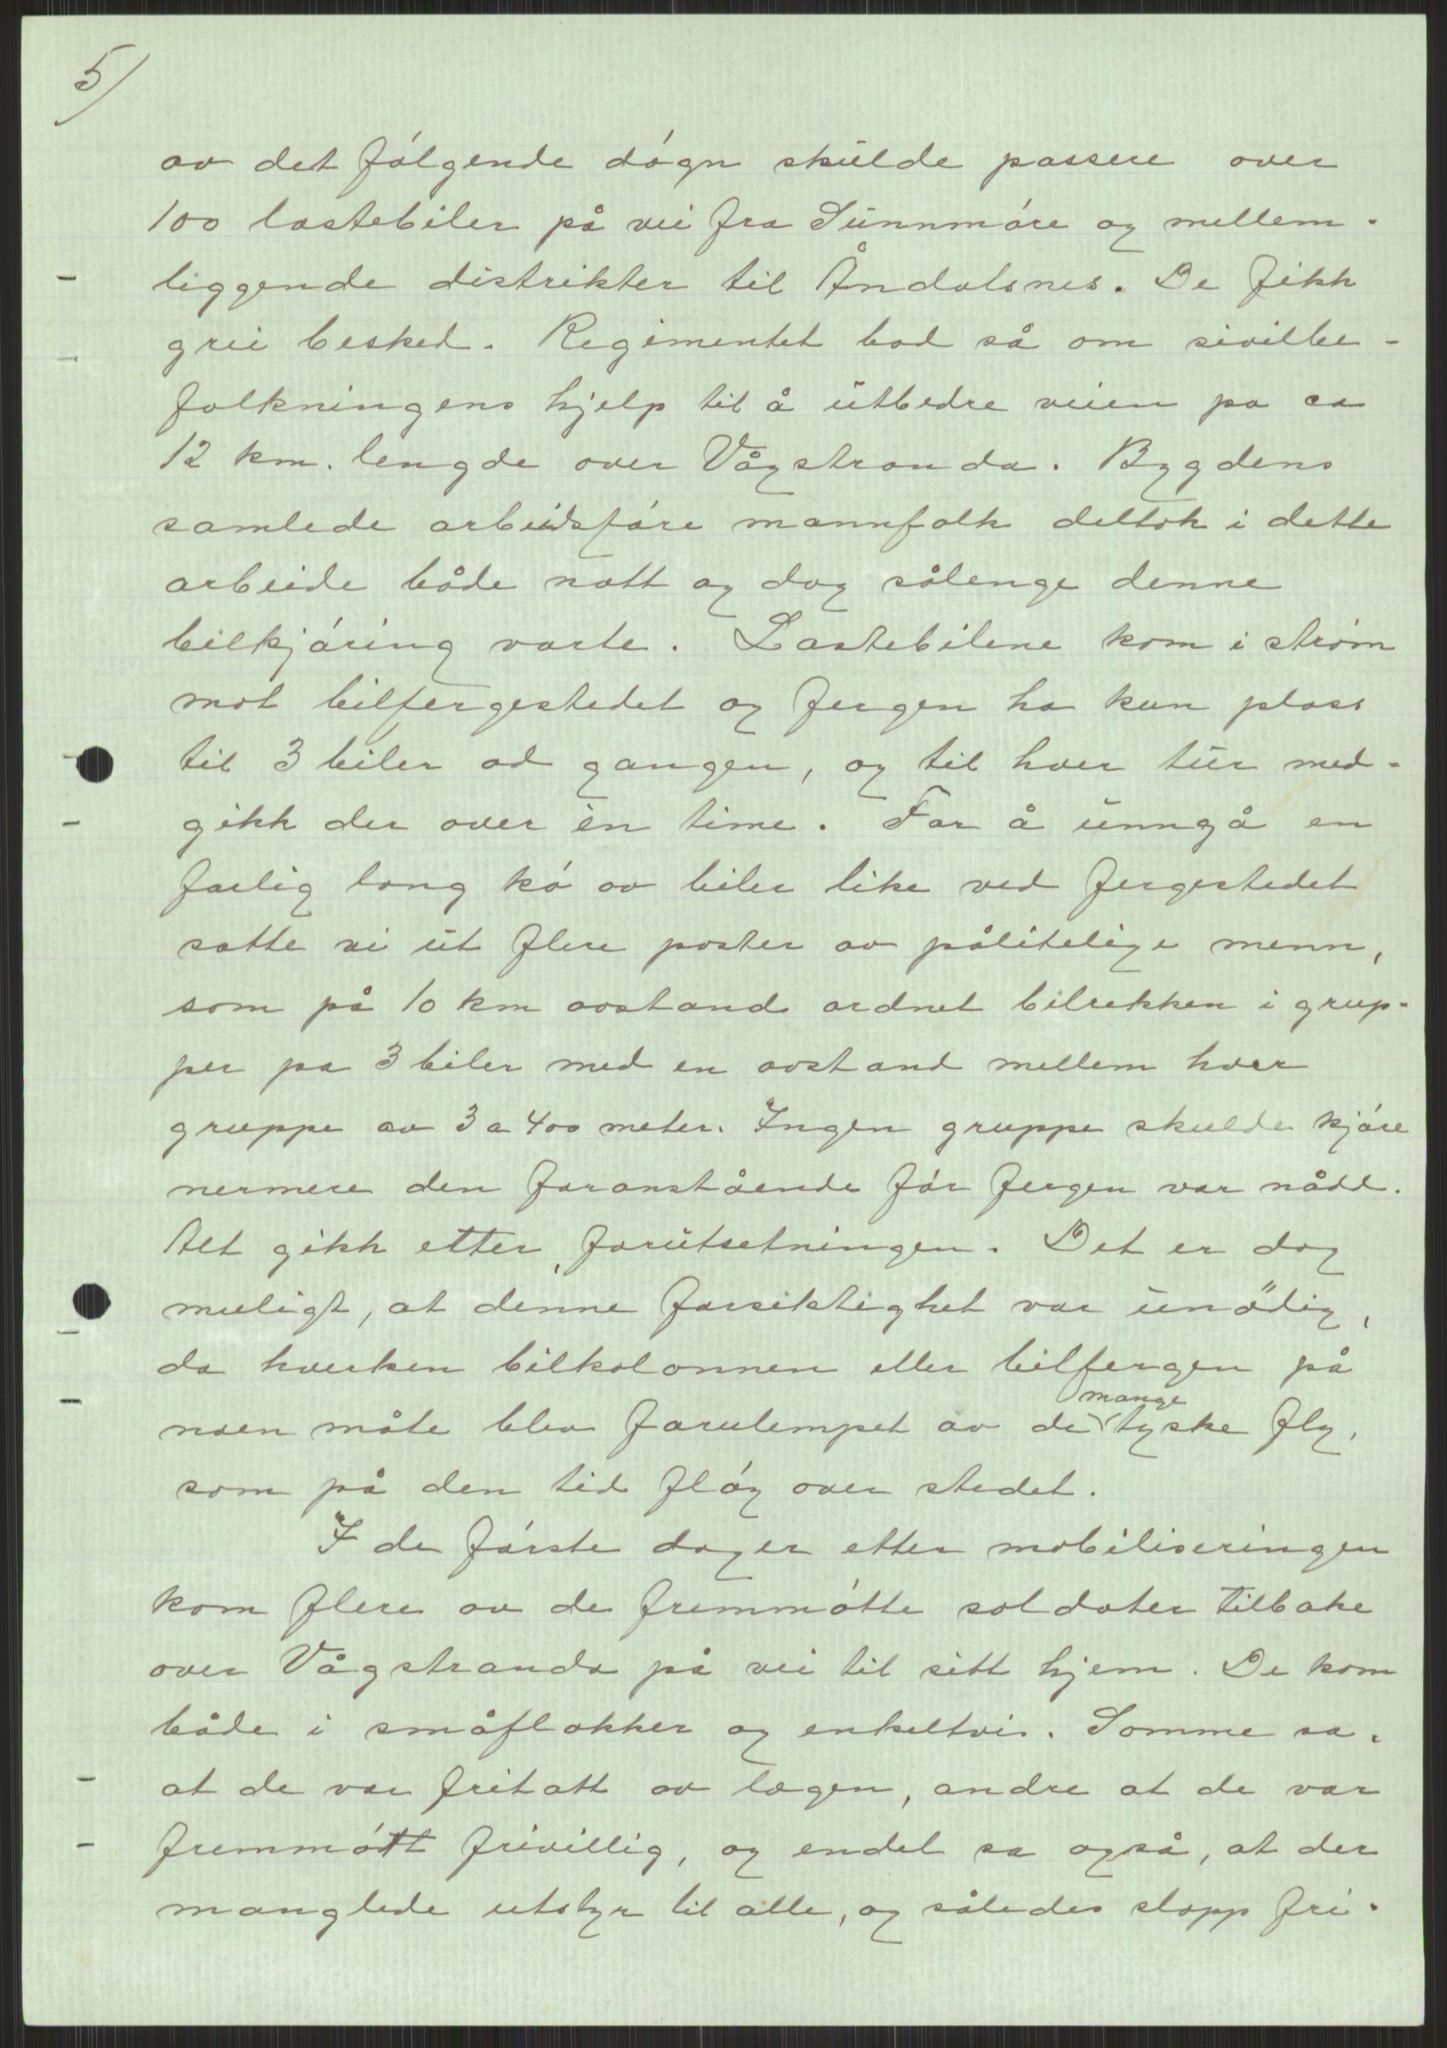 5/
av det følgende døgn skulde passere over
100 lastebiler på vei fra Sunnmøre og mellem-
liggende distrikter til Åndalsnes. De fikk
grei besked. Regimentet bad så om sivilbe-
folkningens hjelp til å utbedre veien pa ca
12 km. lengde over Vågstranda. Bygdens
samlede arbeidsføre mannfolk deltok i dette
arbeide både natt og dag sålenge denne
bilkjøring varte. Lastebilene kom i strøm
mot bilfergestedet og fergen ha kun plass
til 3 biler ad gangen, og til hver tur med-
gikk der over èn time. For å unngå en
farlig lang kø av biler like ved fergestedet
satte vi ut flere poster av pålitelige menn,
som på 10 km avstand ordnet bilrekken i grup-
per pa 3 biler med en avstand mellem hver
gruppe av 3 a 400 meter. Ingen gruppe skulde kjøre
nermere den foranstående før fergen var nådd.
Alt gikk etter forutsetningen. Det er dog
muligt, at denne forsiktighet var unödig,
da hverken bilkolonnen eller bilfergen på
noen måte blev forulempet av de mange tyske fly,
som på den tid fløy over stedet.
I de første dager etter mobiliseringen
kom flere av de fremmøtte soldater tilbake
over Vågstranda på vei til sitt hjem. De kom
både i småflokker og enkeltvis. Somme sa.
at de var fritatt av lægen, andre at de var
fremmøtt frivillig, og endel sa også, at der
manglede utstyr til alle, og således slapp fri-